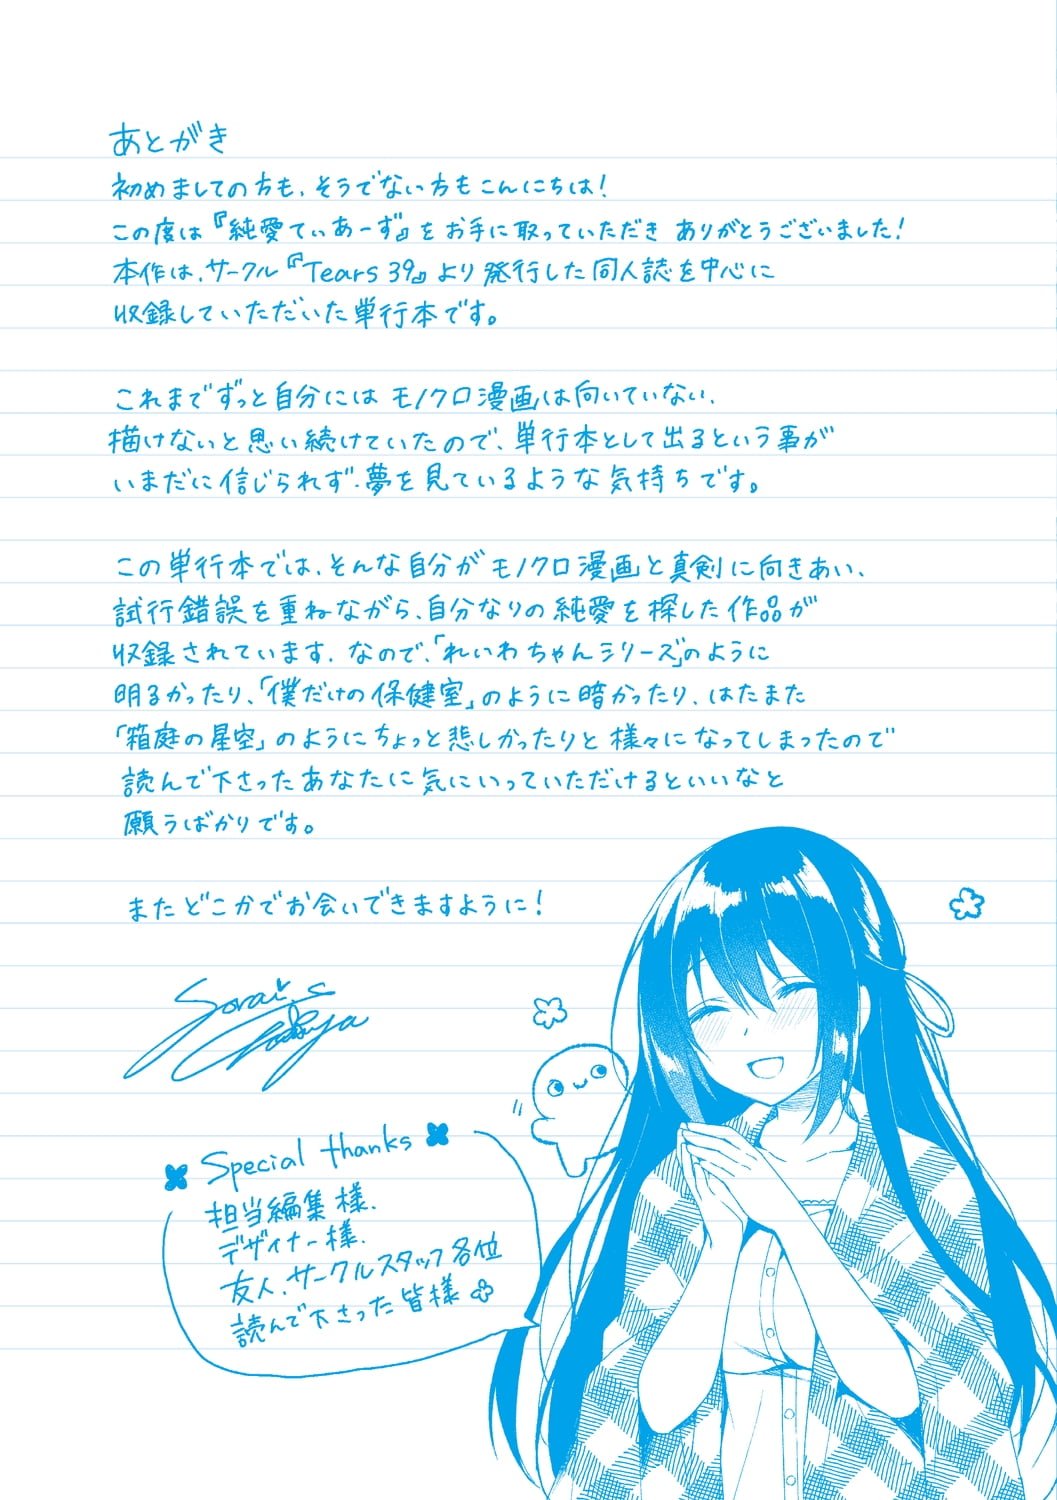 あとがき
初めましての方も、そうでない方もこんにちは!
この度は『純愛てぃあーず』をお手に取っていただき ありがとうございました!
本作は、サークル『Tears 39』より発行した同人誌を中心に
収録していただいた単行本です。
これまでずっと自分には モノクロ漫画は向いていない、
描けないと思い続けていたので、単行本として出るという事が
いまだに信じられず、夢を見ているような気持ちです。
この単行本では、そんな自分がモノクロ漫画と真剣に向きあい、
試行錯誤を重ねながら、自分なりの純愛を探した作品が
収録されています。なので、「れいわちゃんシリーズ」のように
明るかったり、「僕だけの保健室」のように暗かったり、はたまた
「箱庭の星空」のようにちょっと悲しかったりと様々になってしまったので
読んで下さったあなたに気にいっていただけるといいなと
願うばかりです。
またどこかでお会いできますように!
Sorai
Special thanks
担当編集様、
デザイナー様、
友人、サークルスタッフ各位
読んで下さった皆様